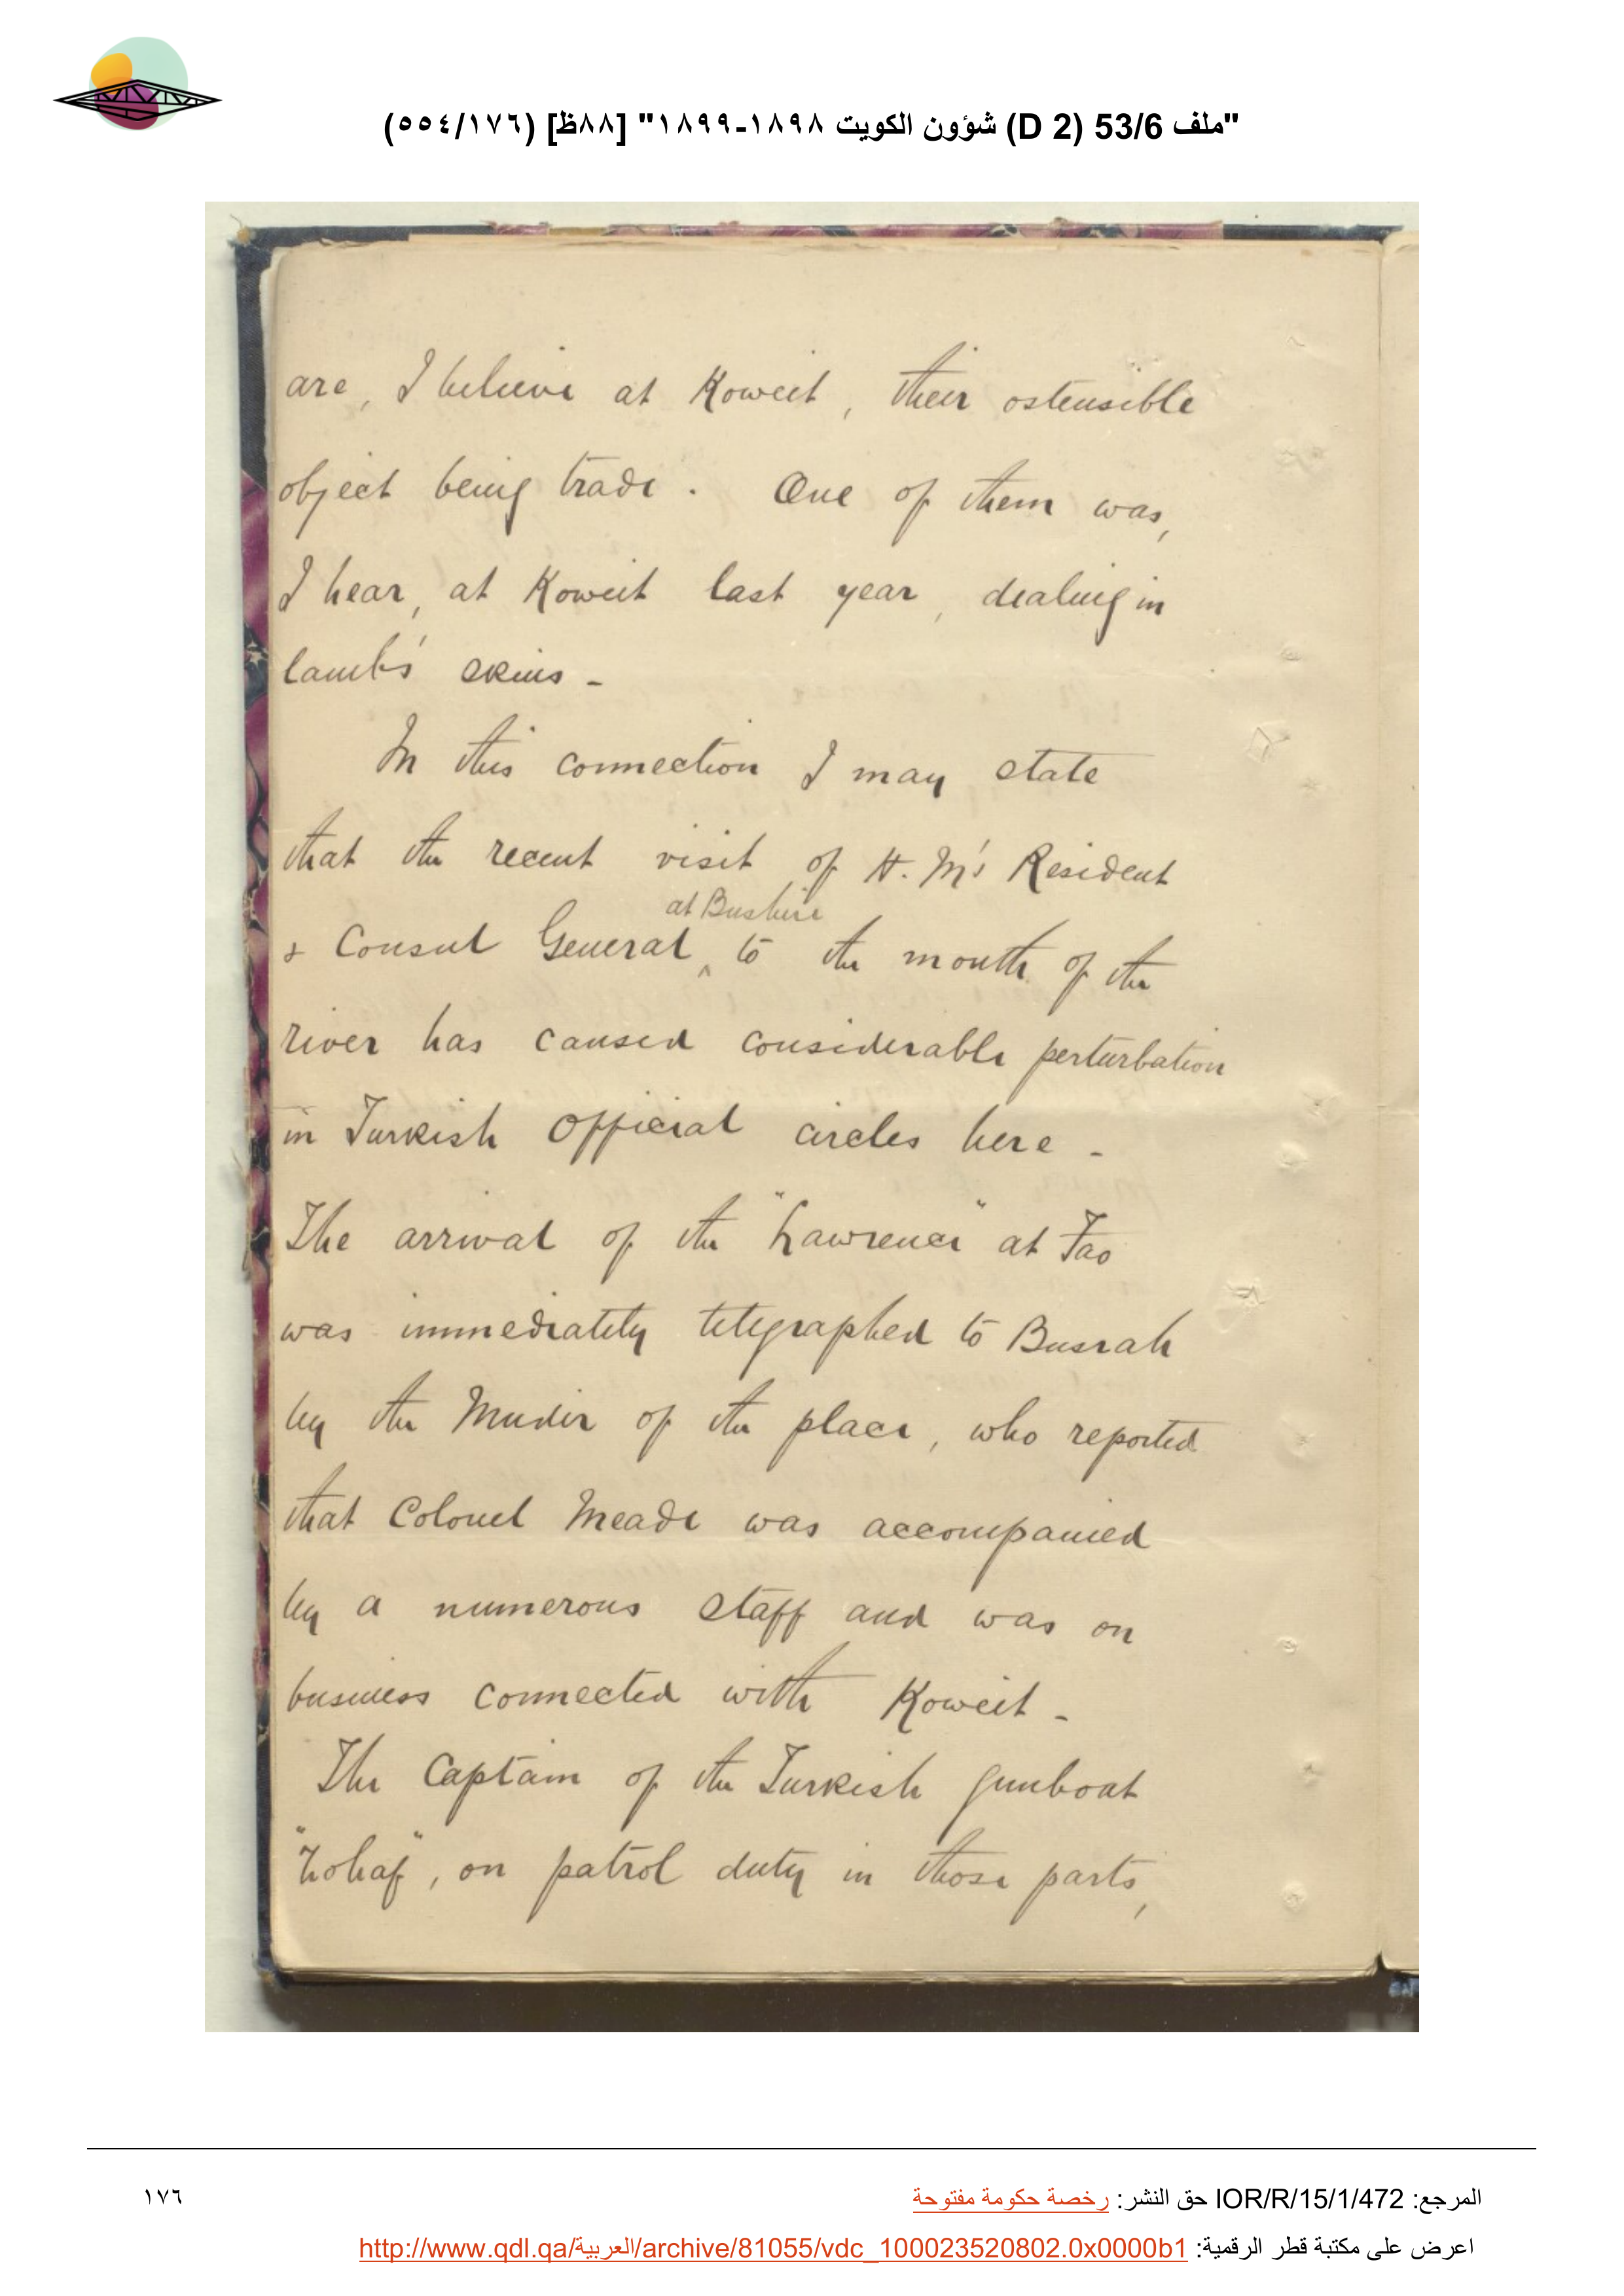 "ملف 53/6 (D 2) شؤون الكويت ١٨٩٨-١٨٩٩" [٨٨ظ] (١٧٦/٥٥٤)
are, I believe at Koweit, their ostensible
object being trade. One of them was,
I hear, at Koweit last year, dealing in
lamb's skins -
In this connection I may state
that the recent visit of H.M's Resident
at Bushire
& Consul General ^ to the mouth of the
river has caused considerable perturbation
in Turkish Official circles here -
The arrival of the "Lawrence" at Fao
was immediately telegraphed to Busrah
by the Mudir of the place, who reported
that Colonel Meade was accompanied
by a numerous staff and was on
business connected with Koweit -
The Captain of the Turkish gunboat
"Zohaf", on patrol duty in those parts,
المرجع: IOR/R/15/1/472 حق النشر: رخصة حكومة مفتوحة
١٧٦
اعرض على مكتبة قطر الرقمية: http://www.qdl.qa/العربية/archive/81055/vdc_100023520802.0x0000b1